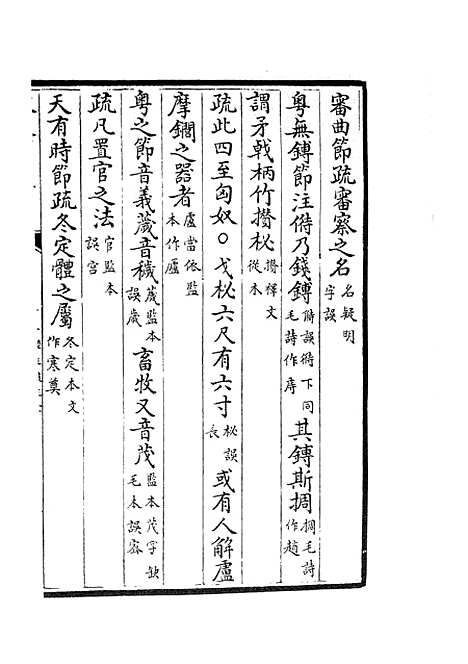 審曲節疏審察之名名疑明字誤
粵無鎛節注偫乃錢鎛偫誤待下同毛詩作庤其鎛斯搁搁毛詩作趙
謂矛戟柄竹攢柲攢釋文從木
疏此四至匈奴〇戈柲六尺有六寸柲誤長或有人解廬
摩鐗之器者廬當依監本作廬
粵之節音義薉音穢薉監本誤歲畜牧又音茂監本茂字缺毛本誤畜
疏凡置官之法官監本誤宫
天有時節疏冬定體之屬冬定本文作寒奠